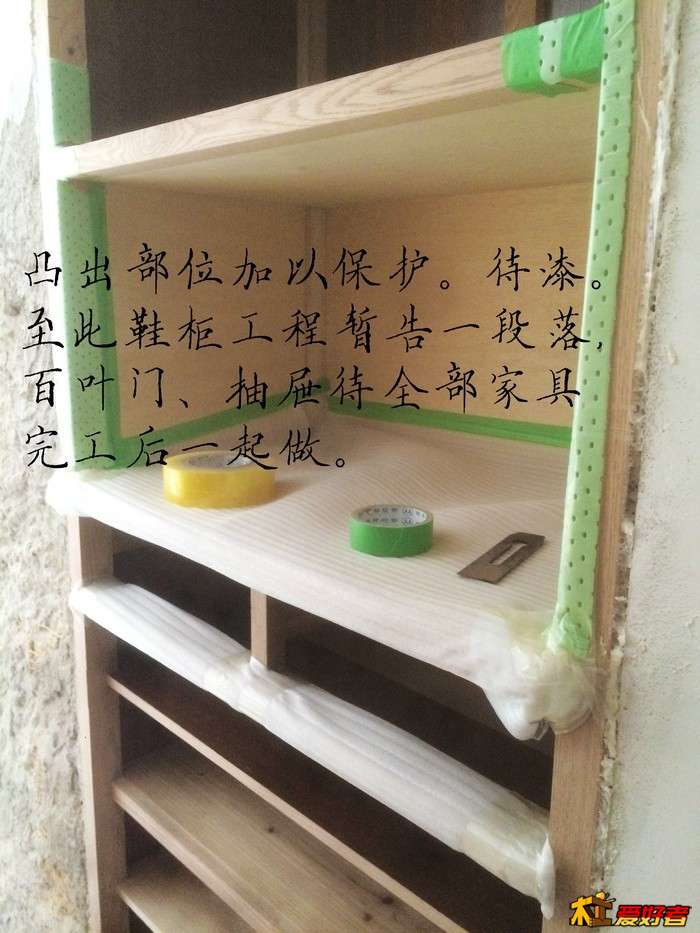 凸出部位加以保护。待漆。
至此鞋柜工程暂告一段落,
百叶门、抽屉待全部家具
完工后一起做。
木工爱好者